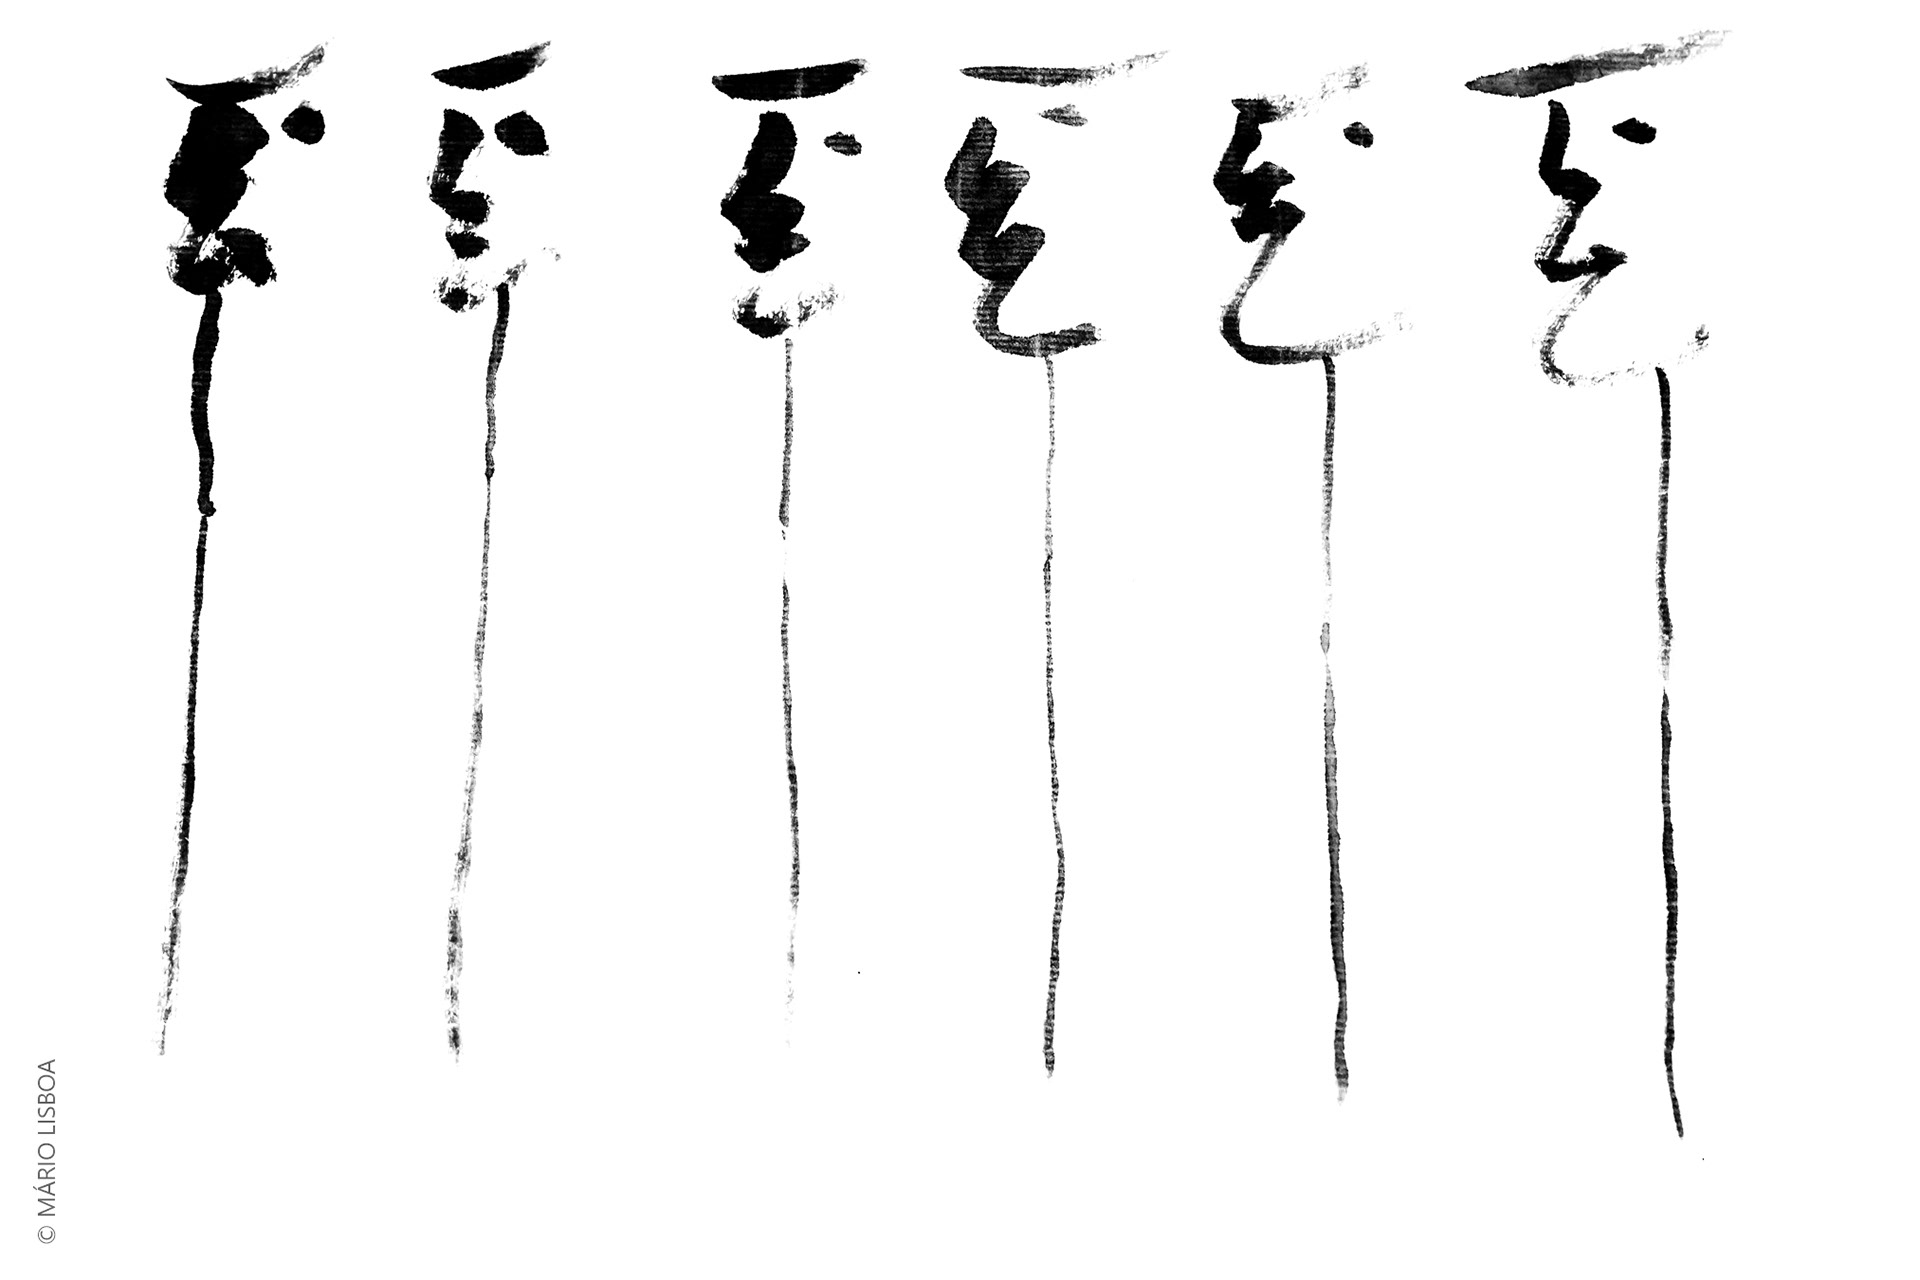 © MÁRIO LISBOA